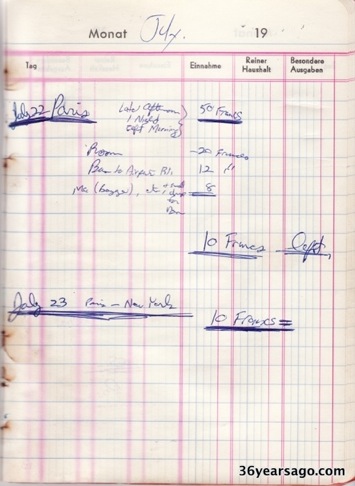 Monat July. 19
Tag Einnahme Reiner Haushalt Besondere Ausgaben
July 22 Paris Late Afternoon 50 Francs
1 Night
Left Morning
Room -20 Francs
Bus to Airport 12 "
8
10 Francs Left.
July 23 Paris - New York
10 Francs =
36yearsago.com